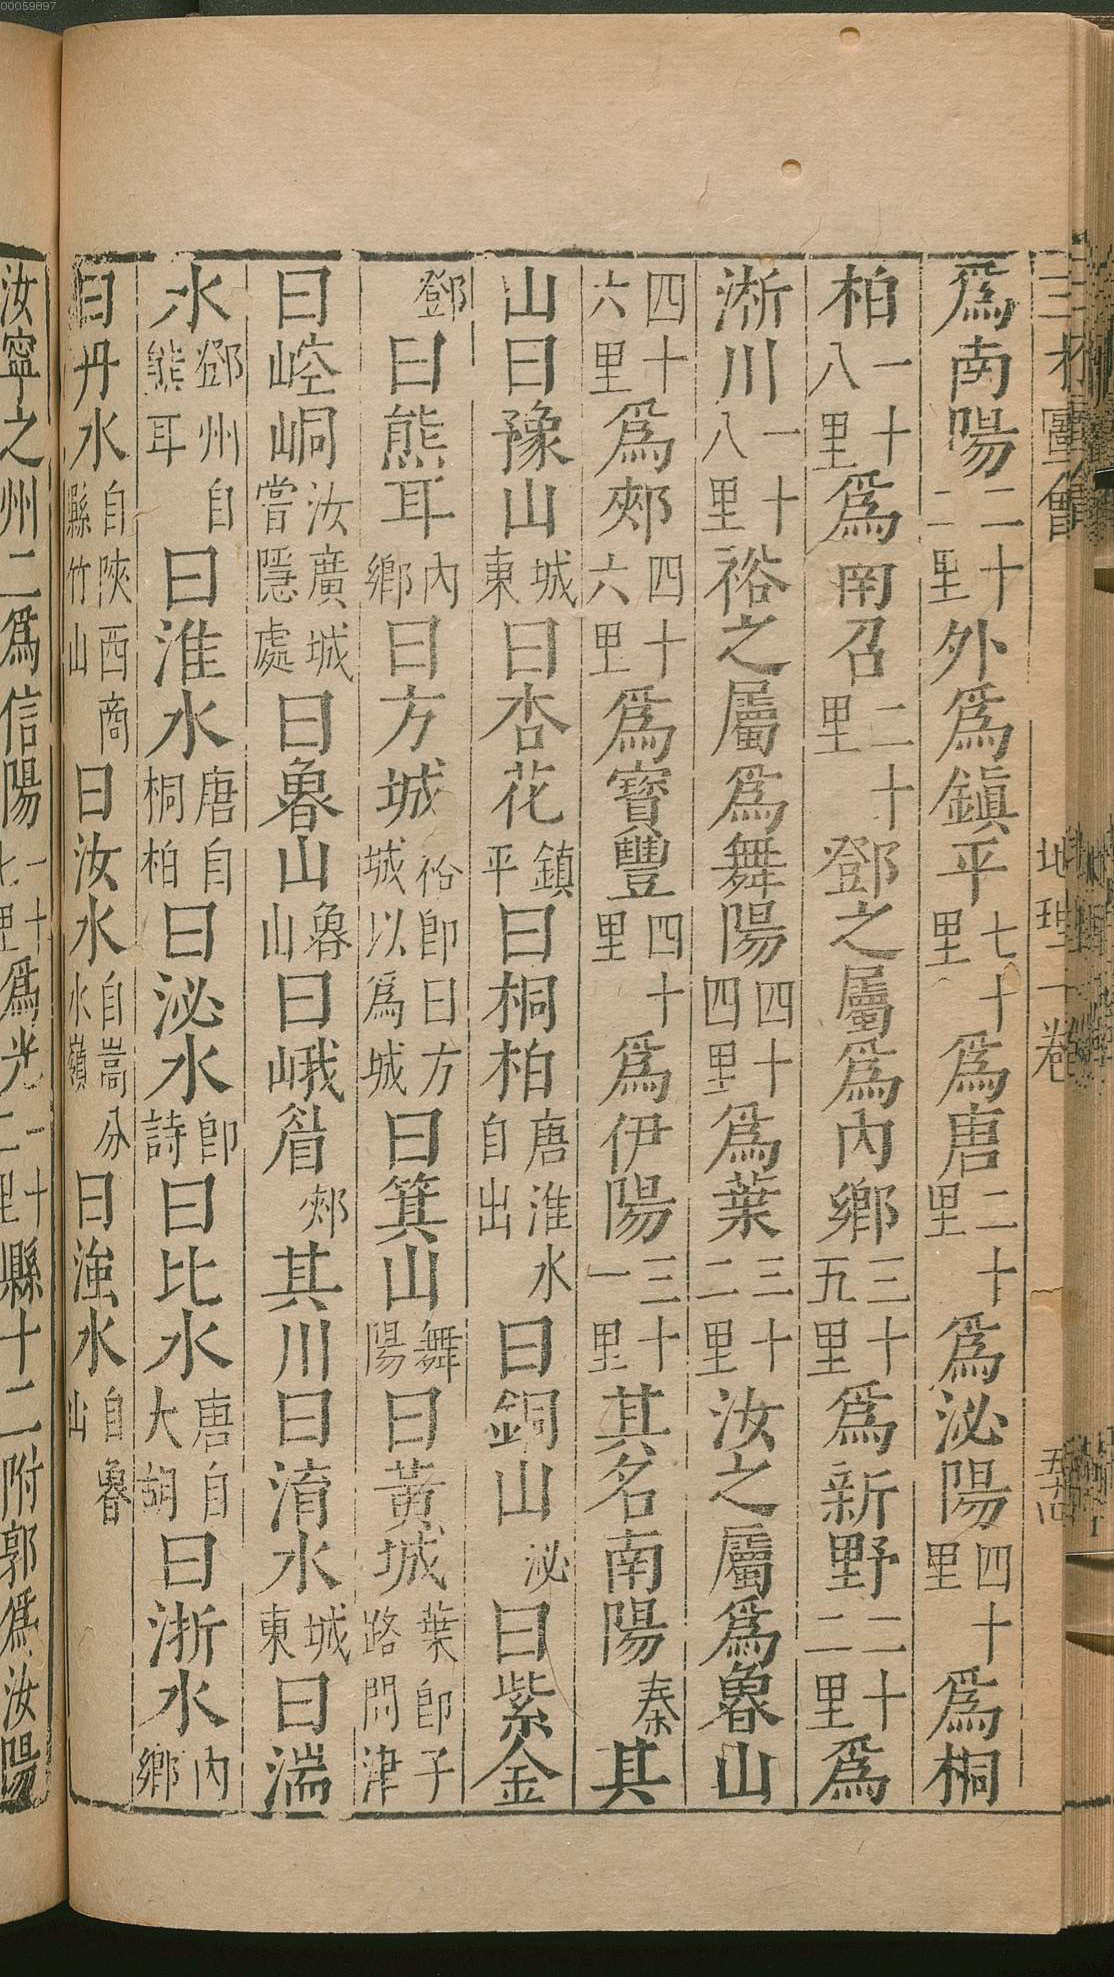 00059897
三才圖會 地理一卷
爲南陽二十二里外爲鎮平七十里爲唐二十里爲泌陽四十里爲桐
柏一十八里爲南召二十里鄧之屬爲內鄉三十五里爲新野二十二里爲
淅川一十八里裕之屬爲舞陽四十四里爲葉三十二里汝之屬爲魯山
四十六里爲郟四十六里爲寳豐四十里爲伊陽三十一里其名南陽秦其
山曰豫山城東曰杏花鎮平曰桐柏唐淮水自出曰銅山泌曰紫金
鄧曰熊耳內鄉曰方城裕卽曰方城以爲城曰箕山舞陽曰黃城葉卽子路問津
曰崆峒汝廣城嘗隱處曰魯山魯山曰峨眉郟其川曰淯水城東曰湍
水鄧州自熊耳曰淮水唐自桐柏曰泌水卽詩曰比水唐自大胡曰淅水內鄉
曰丹水自陝西商縣竹山曰汝水自嵩分水嶺曰滍水自魯山
汝寧之州二爲信陽一十七里爲光一十二里縣十二附郭爲汝陽